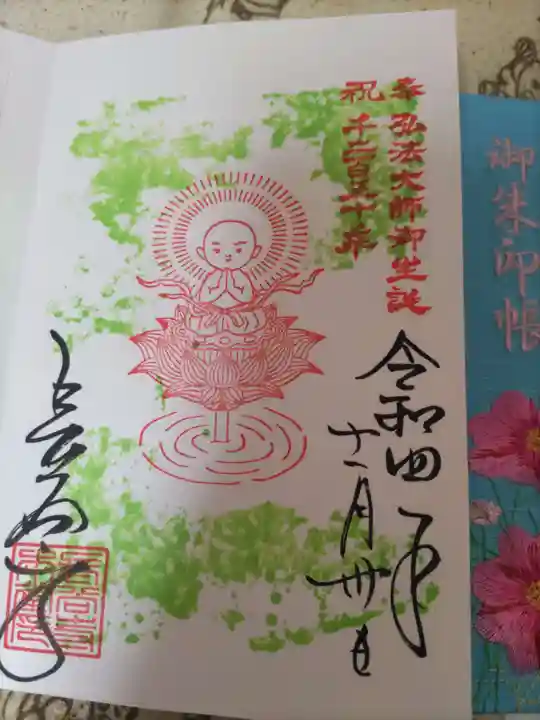 奉祝
弘法大師御生誕
千二百五十年
令和四年
十一月卅日
御朱印帳